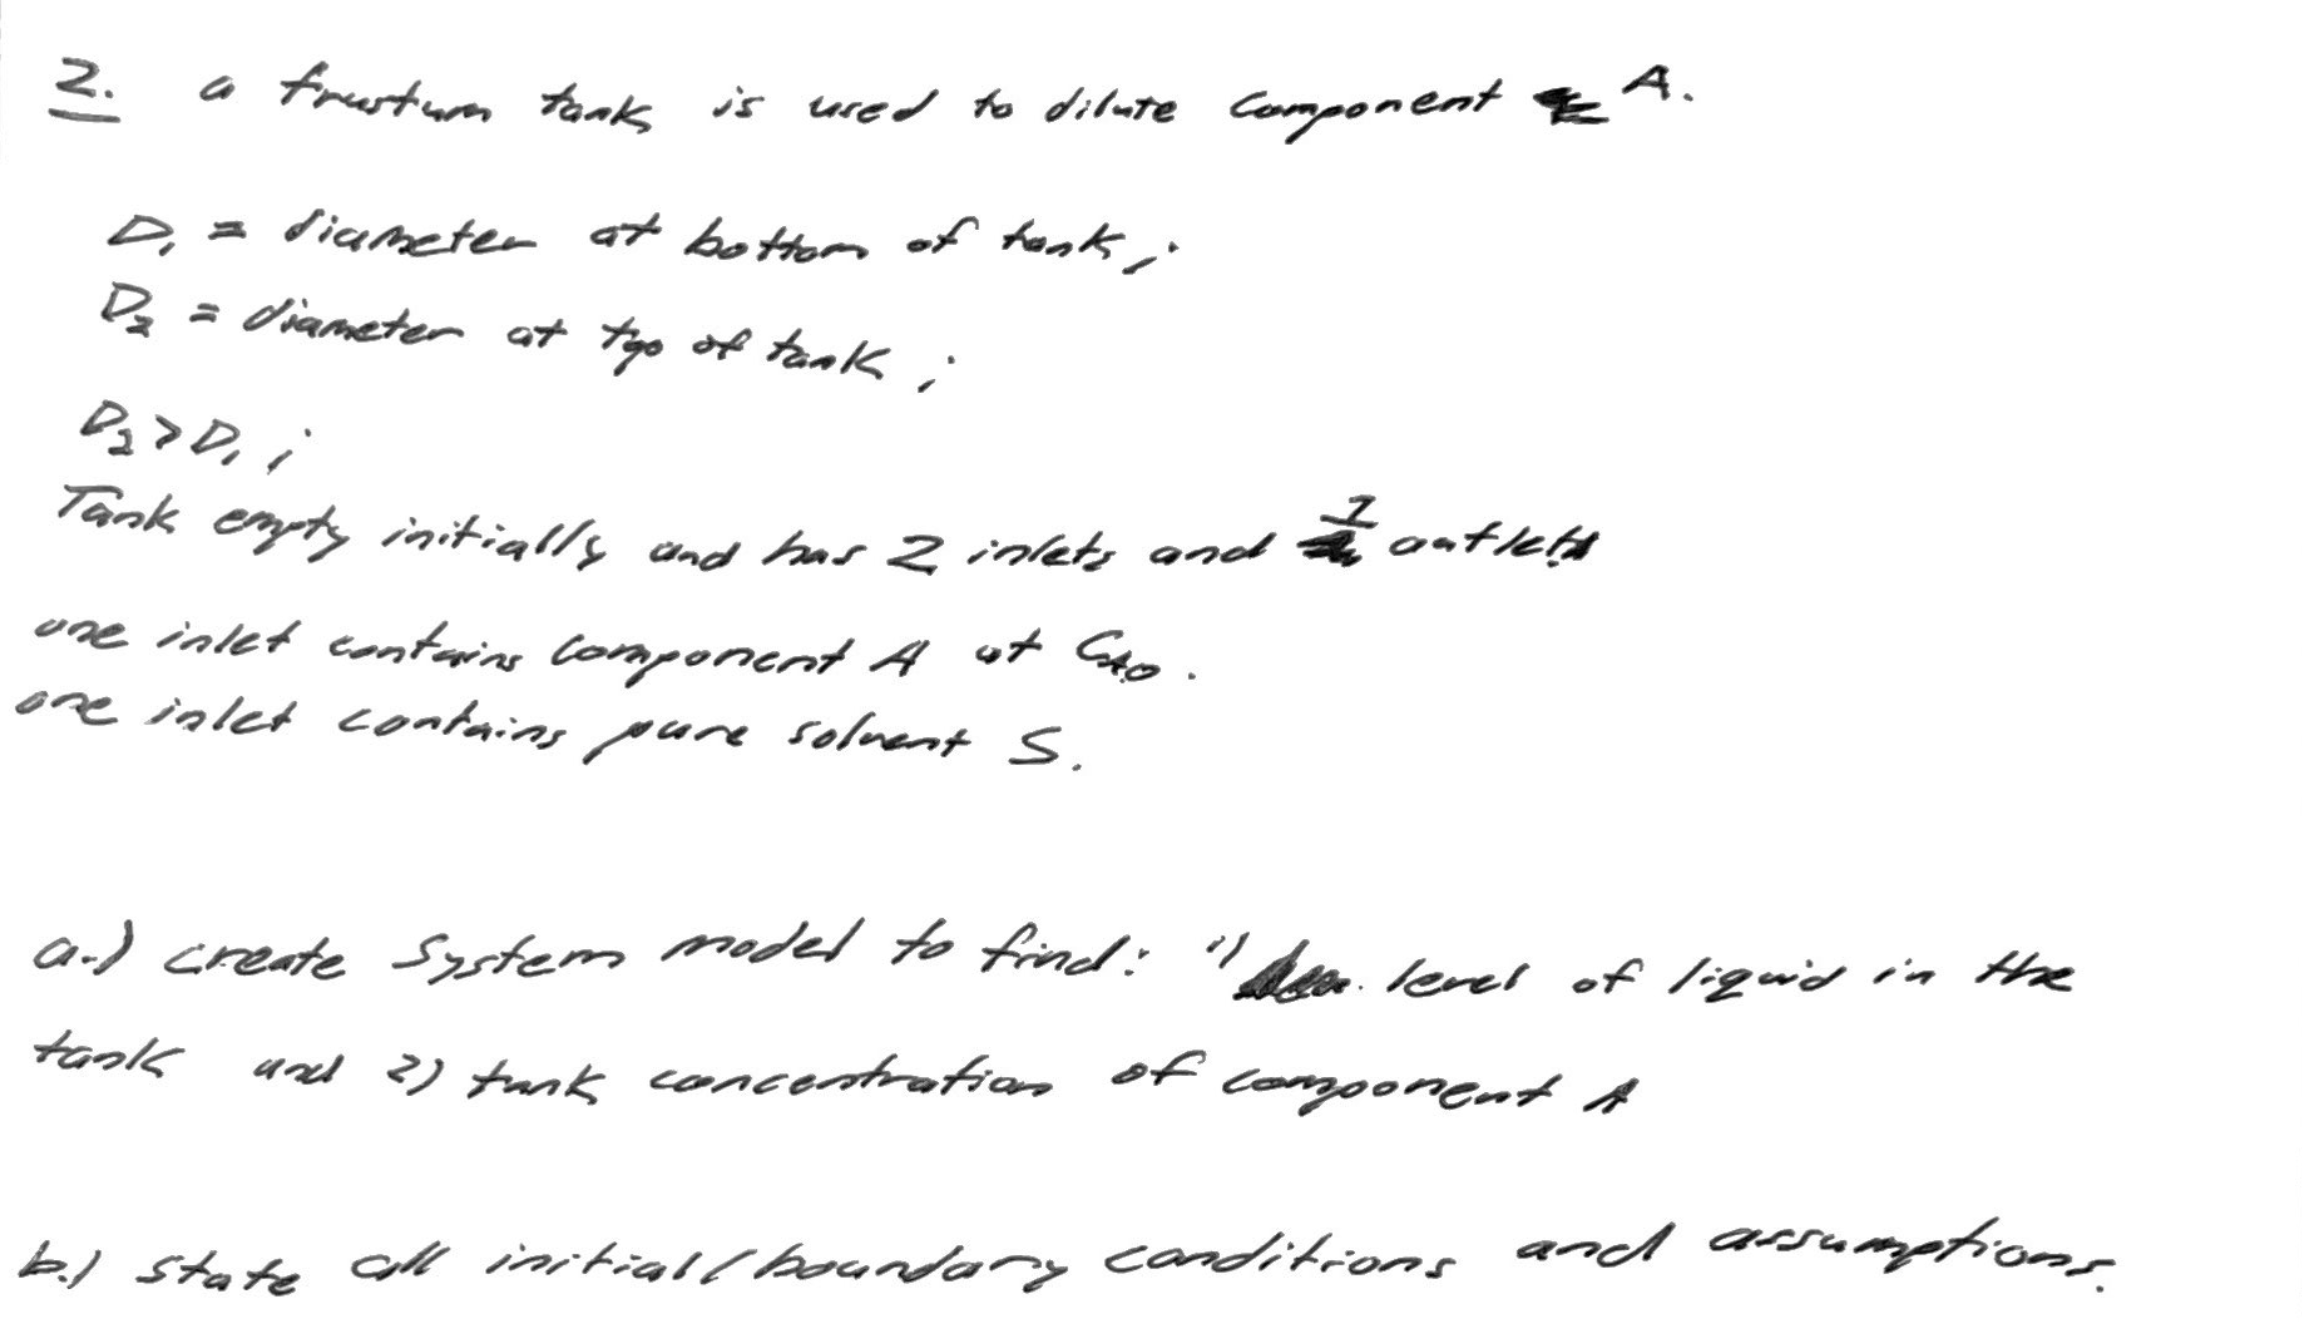 2. a frustum tank is used to dilute component A.
D₁ = diameter at bottom of tank;
D₂ = diameter at top of tank;
D₂ > D₁;
Tank empty initially and has 2 inlets and 1 outlet
one inlet contains component A at C_A0.
one inlet contains pure solvent S.
a.) create system model to find: 1) level of liquid in the
tank and 2) tank concentration of component A
b.) state all initial/boundary conditions and assumptions.